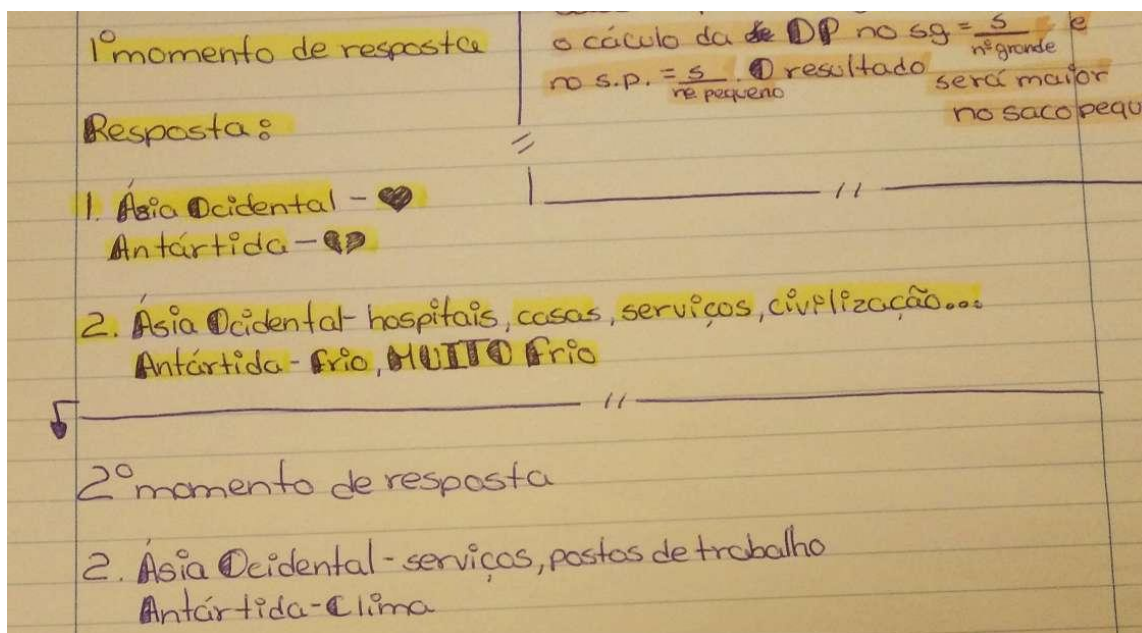 1º momento de resposta
Resposta:
1. Ásia Ocidental -
Antártida -
2. Ásia Ocidental - hospitais, casas, serviços, civilização...
Antártida - frio, MUITO frio
2º momento de resposta
2. Ásia Ocidental - serviços, postos de trabalho
Antártida - Clima
o cáculo da DP no sg = s/nº grande e
no s.p. = s/nº pequeno. O resultado será maior
no saco pequ